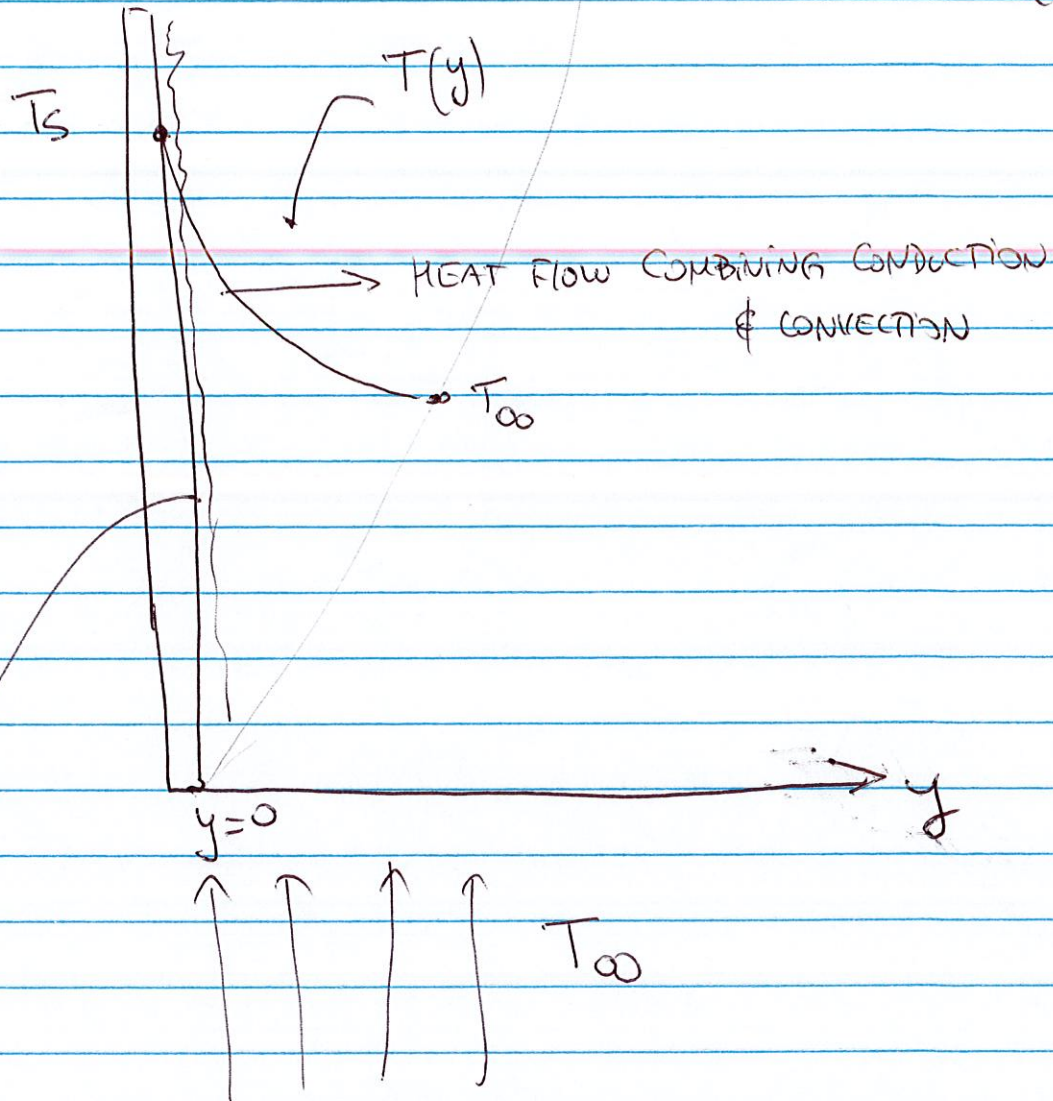 T(y)
Ts
HEAT FLOW COMBINING CONDUCTION
& CONVECTION
T∞
y
y=0
T∞